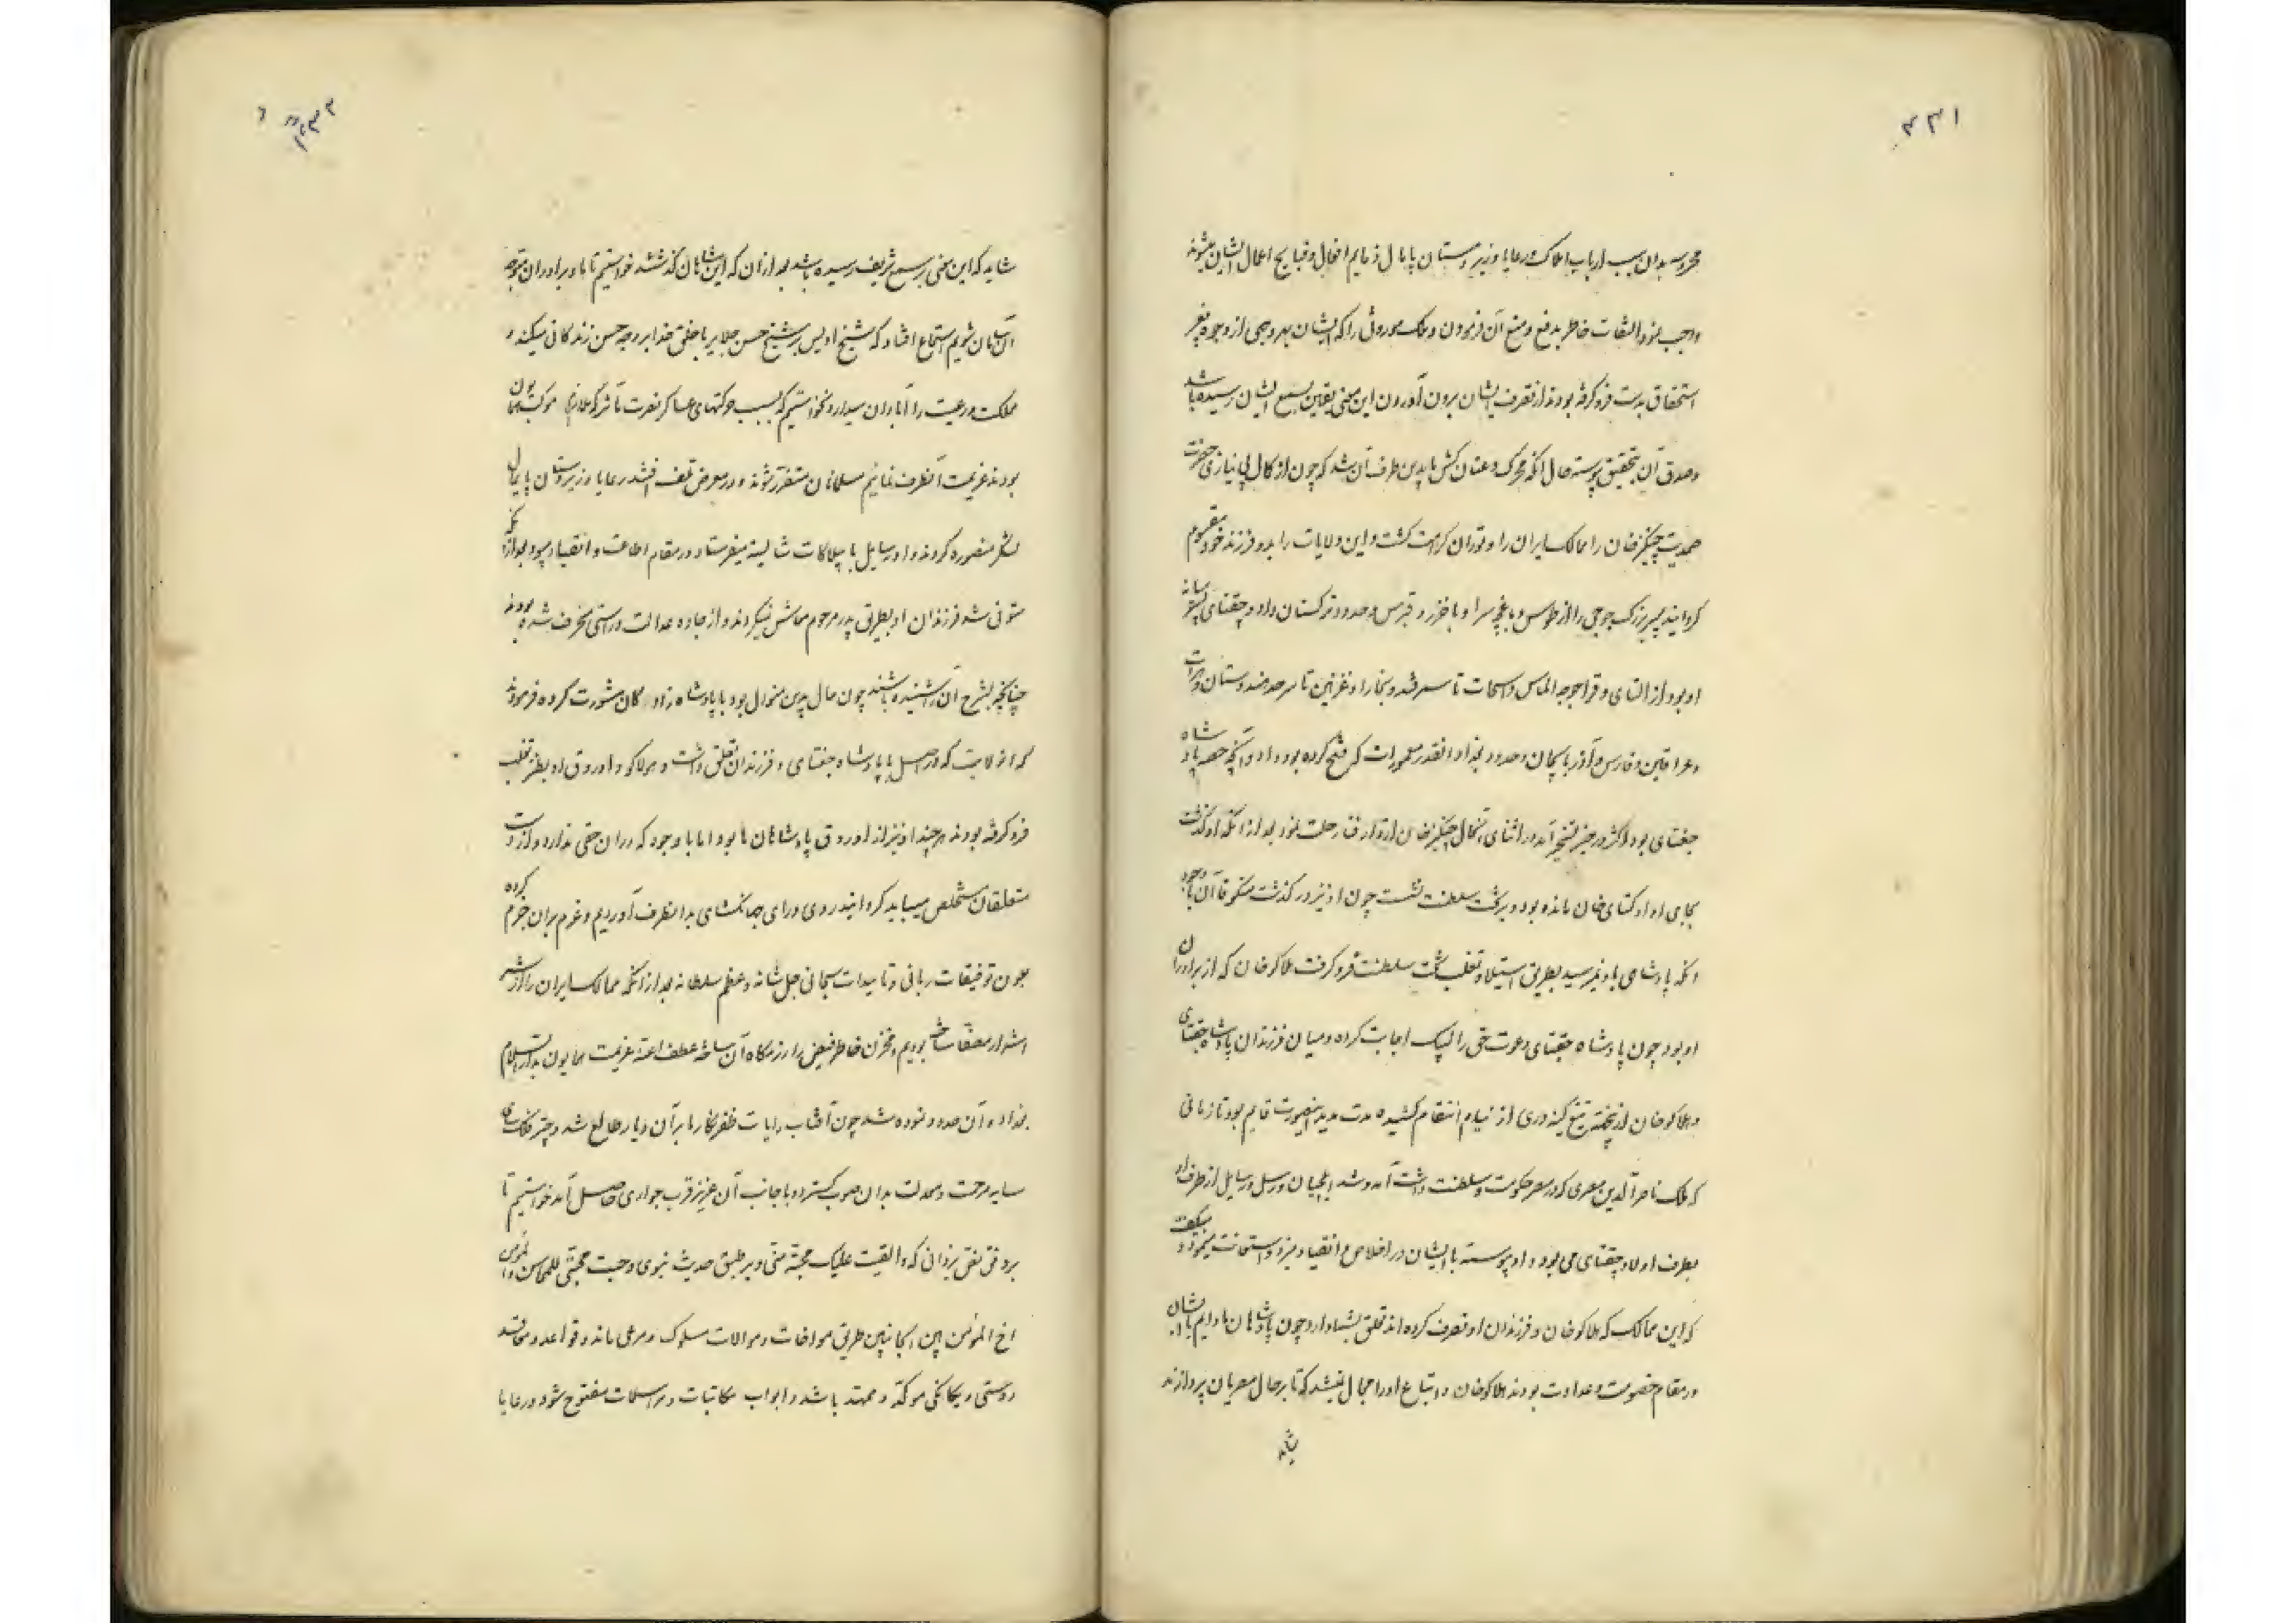 ۳۳۱
محروسه بدان سبب ارباب املاک و رعایا و زیردستان پایمال ذمایم افعال و قبایح اعمال ایشان میشوند
واجب نمود التفات خاطر بدفع و منع آن فرمودن و ملک موروثی را که ایشان بهر وجهی از وجوه بغیر
استحقاق بدست فرو گرفته بودند از تصرف ایشان برون آوردن این معنی یقین بسمع ایشان رسیده باشد
و صدق آن بتحقیق پیوسته حال آنکه محرک و عنان کش ما بدین طرف آن شد که چون از کمال بی نیازی حضرت
صمدیت چنگیز خان را ممالک ایران را و توران کرامت گشت و این ولایات را بدو فرزند خود مقسوم
گردانید پسر بزرگ جوجی را از طوس و باغچه سرا و باخزر و قبرس و حدود ترکستان داد و چقتای پسر میانه
او بود از التای و قراجوجه الماس و اسحات تا سمرقند و بخارا و غزنین تا سرحد هندوستان و هرات
و عراقین و فارس و آذربایجان و حدود بغداد آنقدر معمورات که فتح کرده بود داد و آنچه حصه پادشاه
جغتای بود اکثر در حیز تسخیر آمد در اثنای آنحال چنگیز خان از دار فنا رحلت نمود بعد از آنکه او گذشت
بجای او اوکتای خان مانده بود و بر تخت سلطنت نشست چون او نیز در گذشت منکو قاآن با وجود
آنکه پادشاهی باو نمیرسید بطریق استیلا و تغلب تخت سلطنت فرو گرفت هلاکو خان که از برادران
او بود چون پادشاه جقتای دعوت حق را لبیک اجابت کرده و میان فرزندان پادشاه جقتای
و هلاکو خان از نخستین تیغ کینه وری از نیام انتقام کشیده مدت مدید بدینصورت قایم بود تا زمانی
که ملک ناصر الدین مصری که در مصر حکومت و سلطنت داشت آمد و شد ایلچیان و رسل و رسایل از طرف او
بطرف اولاد چقتای می بود و او پیوسته با ایشان در اخلاص و انقیاد میزد و استعانت مینمود و میگفت
که این ممالک که هلاکو خان و فرزندان او تصرف کرده اند تعلق بشما دارد چون پادشاهان ما دایم با ایشان
در مقام خصومت و عداوت بودند هلاکو خان و اتباع او را مجال نمیشد که تا بر حال مصریان پردازند
شاید
۳۳۲
شاید که این معنی بسمع شریف رسیده باشد بعد از آن که این شاهان گذشتند خواستیم تا با برادران متوجه
آن سامان شویم استماع افتاد که شیخ اویس پسر شیخ حسن جلایر با خلق خدا بر وجه حسن زندگانی میکند و
مملکت و رعیت را آبادان میدارد نخواستیم که بسبب حرکتهای عساکر نصرت مآثر که ملازم موکب همایون
بودند عزیمت آنطرف نمائیم مسلمانان متضرر شوند و در معرض تلف افتند رعایا و زیردستان پایمال
لشکر منصوره گردند و او رسایل با بیلاکات شایسته میفرستاد و در مقام اطاعت و انقیاد میبود بعد از آنکه
متوفی شد فرزندان او بطریق پدر مرحوم معاش نمیکردند و از جاده عدالت و راستی منحرف شده بودند
چنانچه بشرح آن را شنیده باشند چون حال بدین منوال بود با پادشاه زادگان مشورت کرده فرمودند
که این ولایت که در اصل بپادشاه جغتای و فرزندان تعلق داشت و هولاکو و اوروق او بطریق تغلب
فرو گرفته بودند هر چند او نیز از اوروق پادشاهان ما بود اما با وجود که در آن حقی ندارد و از دست
متعلقان متخلص میباید گردانید روی و رای جهانگشای بدانطرف آوردیم و عزم بر آن جزم کرده
بعون توفیقات ربانی و تاییدات سبحانی جل شانه و عظم سلطانه بعد از آنکه ممالک ایران را از شر
اشرار مصفا ساخته بودیم و مخزن خاطر فیض را رزمگاه آن ساخته عطف اعنه عزیمت همایون بدارالسلام
بغداد و آن حدود نموده شد چون آفتاب رایات ظفر نگار ما بر آن دیار طالع شد و چتر فلک سای
سایه مرحمت و معدلت بدان صوب گسترد و با جانب آن عزیز قرب جواری حاصل آمد خواستیم تا
بر وفق نص یزدانی که و القیت علیک محبة منی و بر طبق حدیث نبوی وجبت محبتی للمحاسن و المومن
اخ المؤمن بین الجانبین طریق مواخات و موالات مسلوک و مرعی ماند و قواعد و معاقد
دوستی و یگانگی موکد و ممهد باشد و ابواب مکاتبات و مراسلات مفتوح شود و رعایا